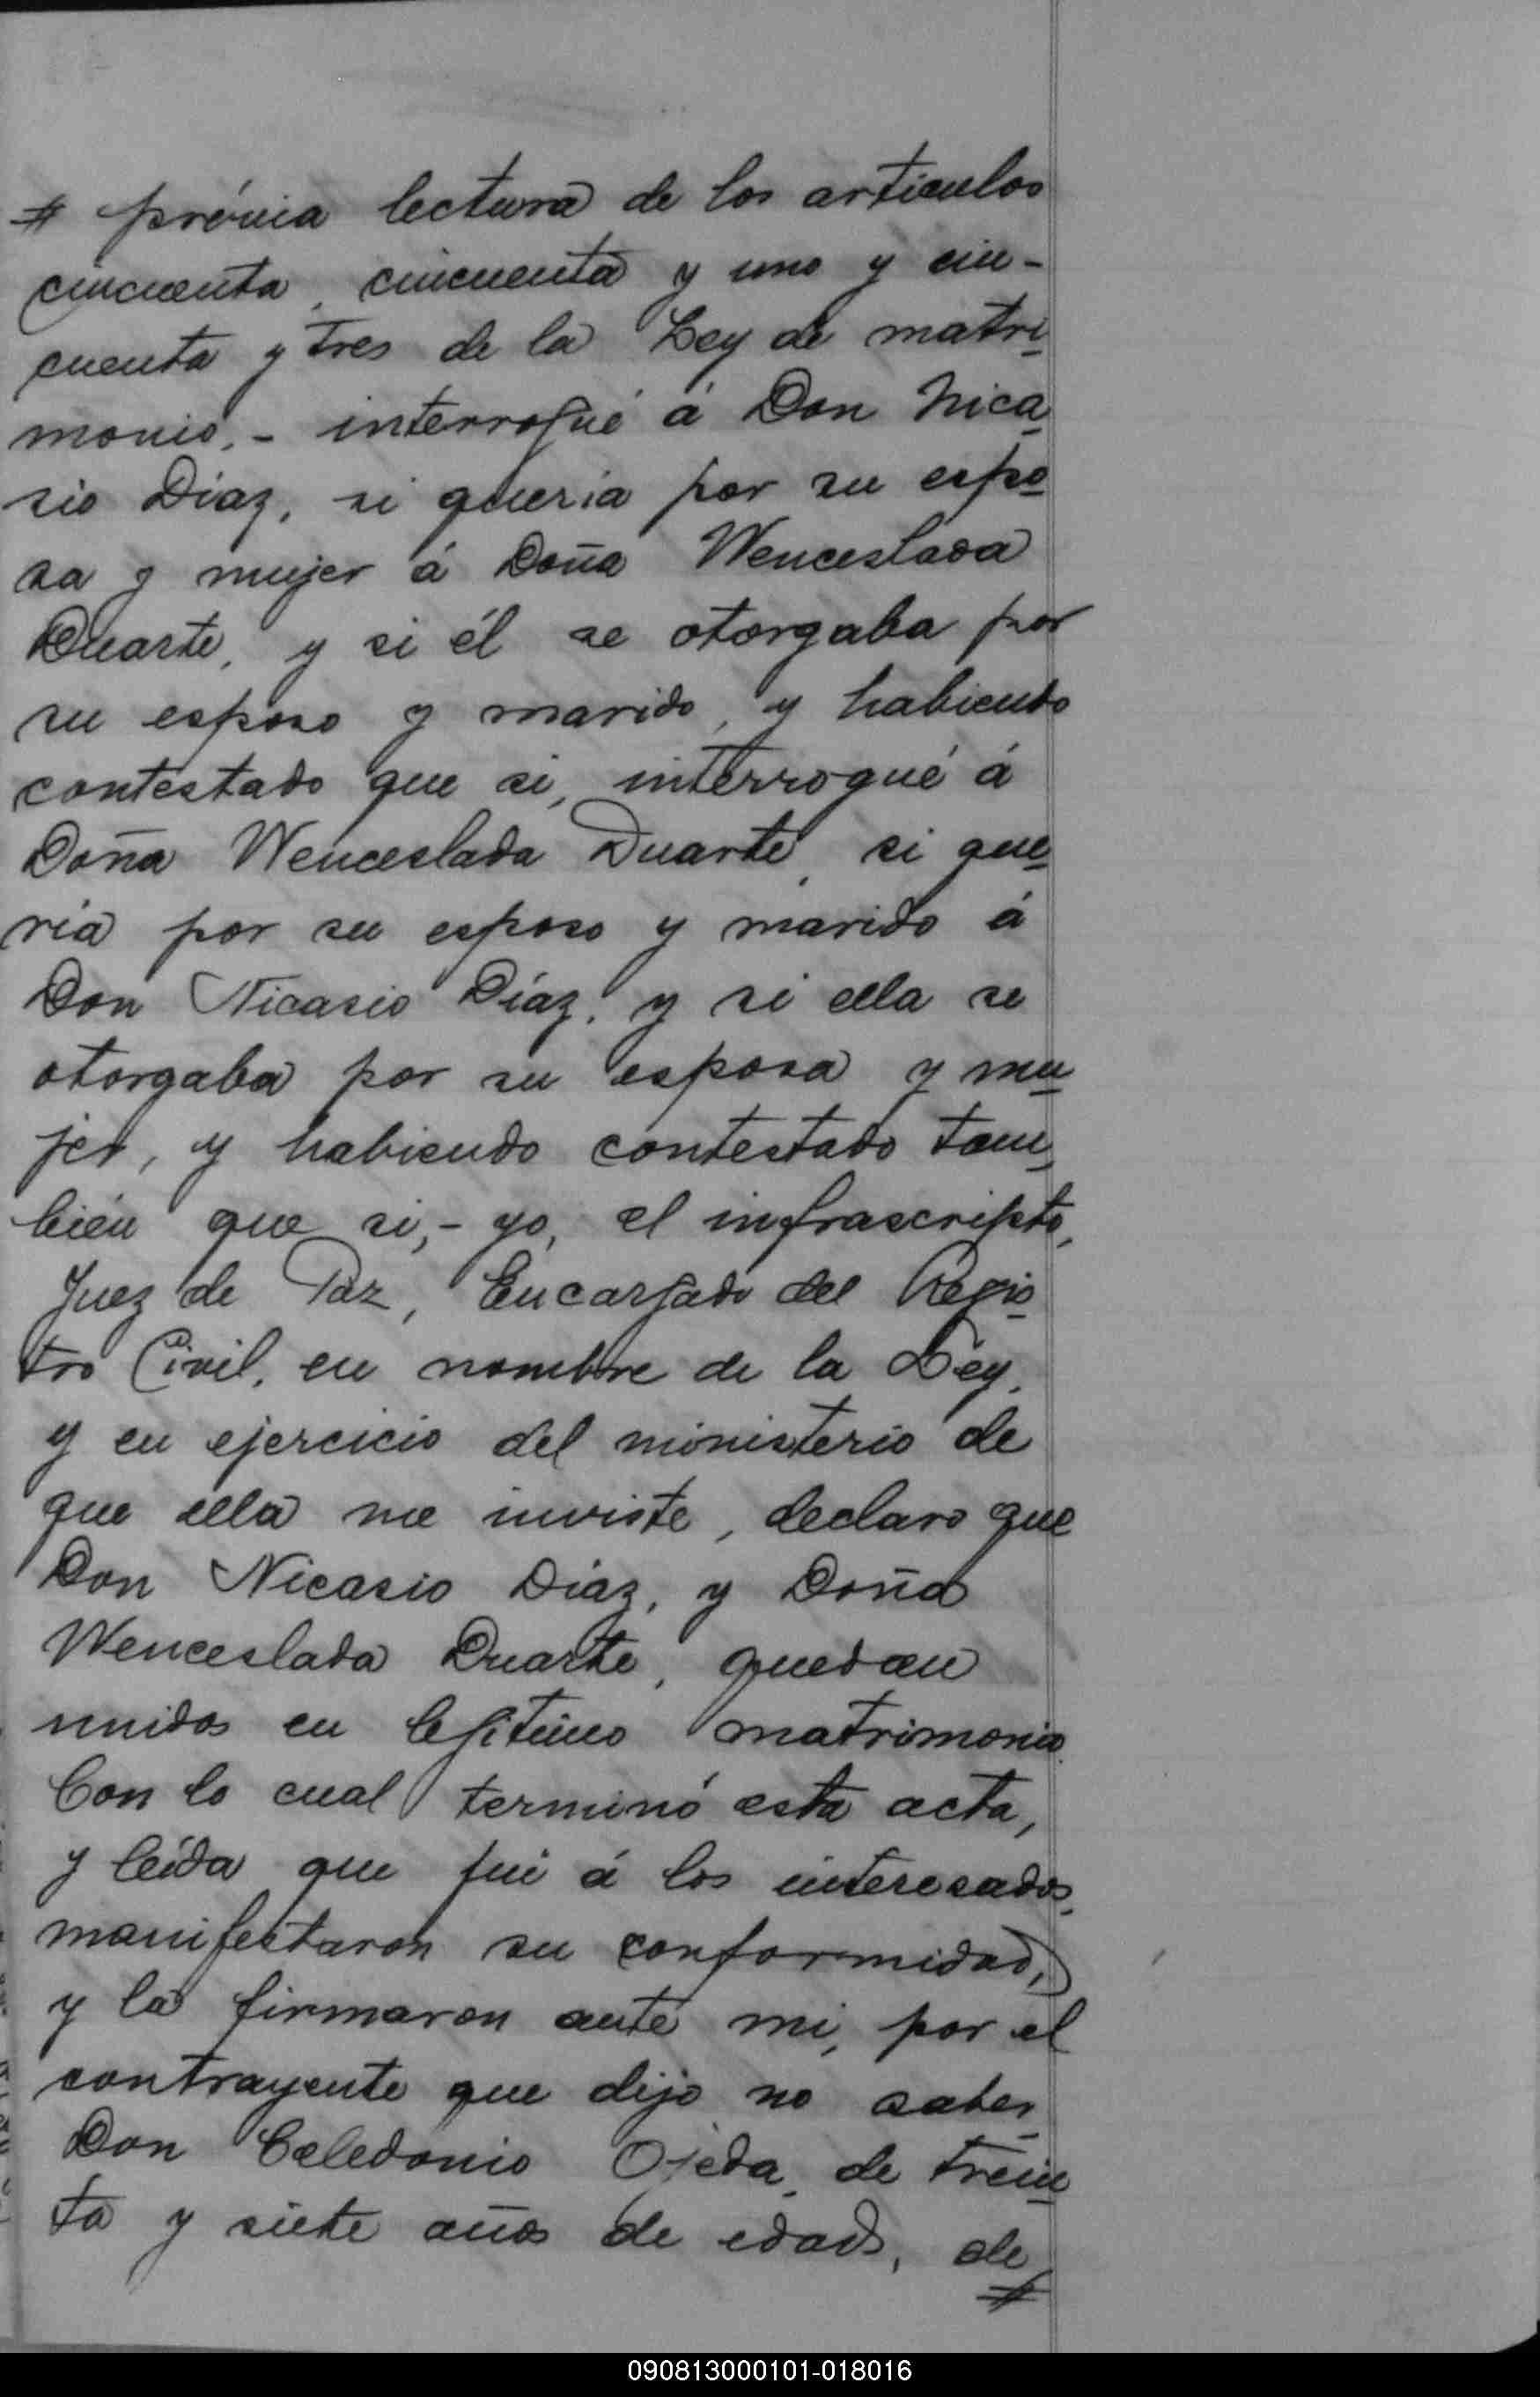 # prévia lectura de los articulos
cincuenta, cincuenta y uno y cin-
cuenta y tres de la Ley de matri
monio.- interrogué á Don Nica
sio Díaz, si queria por su espo
sa y mujer á Doña Wenceslada
Duarte, y si él se otorgaba por
su esposo y marido, y habiendo
contestado que si, interrogué á
Doña Wenceslada Duarte, si que
ria por su esposo y marido á
Don Nicasio Díaz, y si ella se
otorgaba por su esposa y mu
jer, y habiendo contestado tam
bién que si,- yo, el infrascripto,
Juez de Paz, Encargado del Regis
tro Civil, en nombre de la Ley,
y en ejercicio del ministerio de
que ella me inviste, declaro que
Don Nicasio Díaz, y Doña
Wenceslada Duarte, quedan
unidos en legitimo matrimonio.
Con lo cual terminó esta acta,
y leída que fui á los interesados,
manifestaron su conformidad,
y la firmaron ante mi, por el
contrayente que dijo no saber
Don Celedonio Ojeda, de trein
ta y siete años de edad, de
#
090813000101-018016